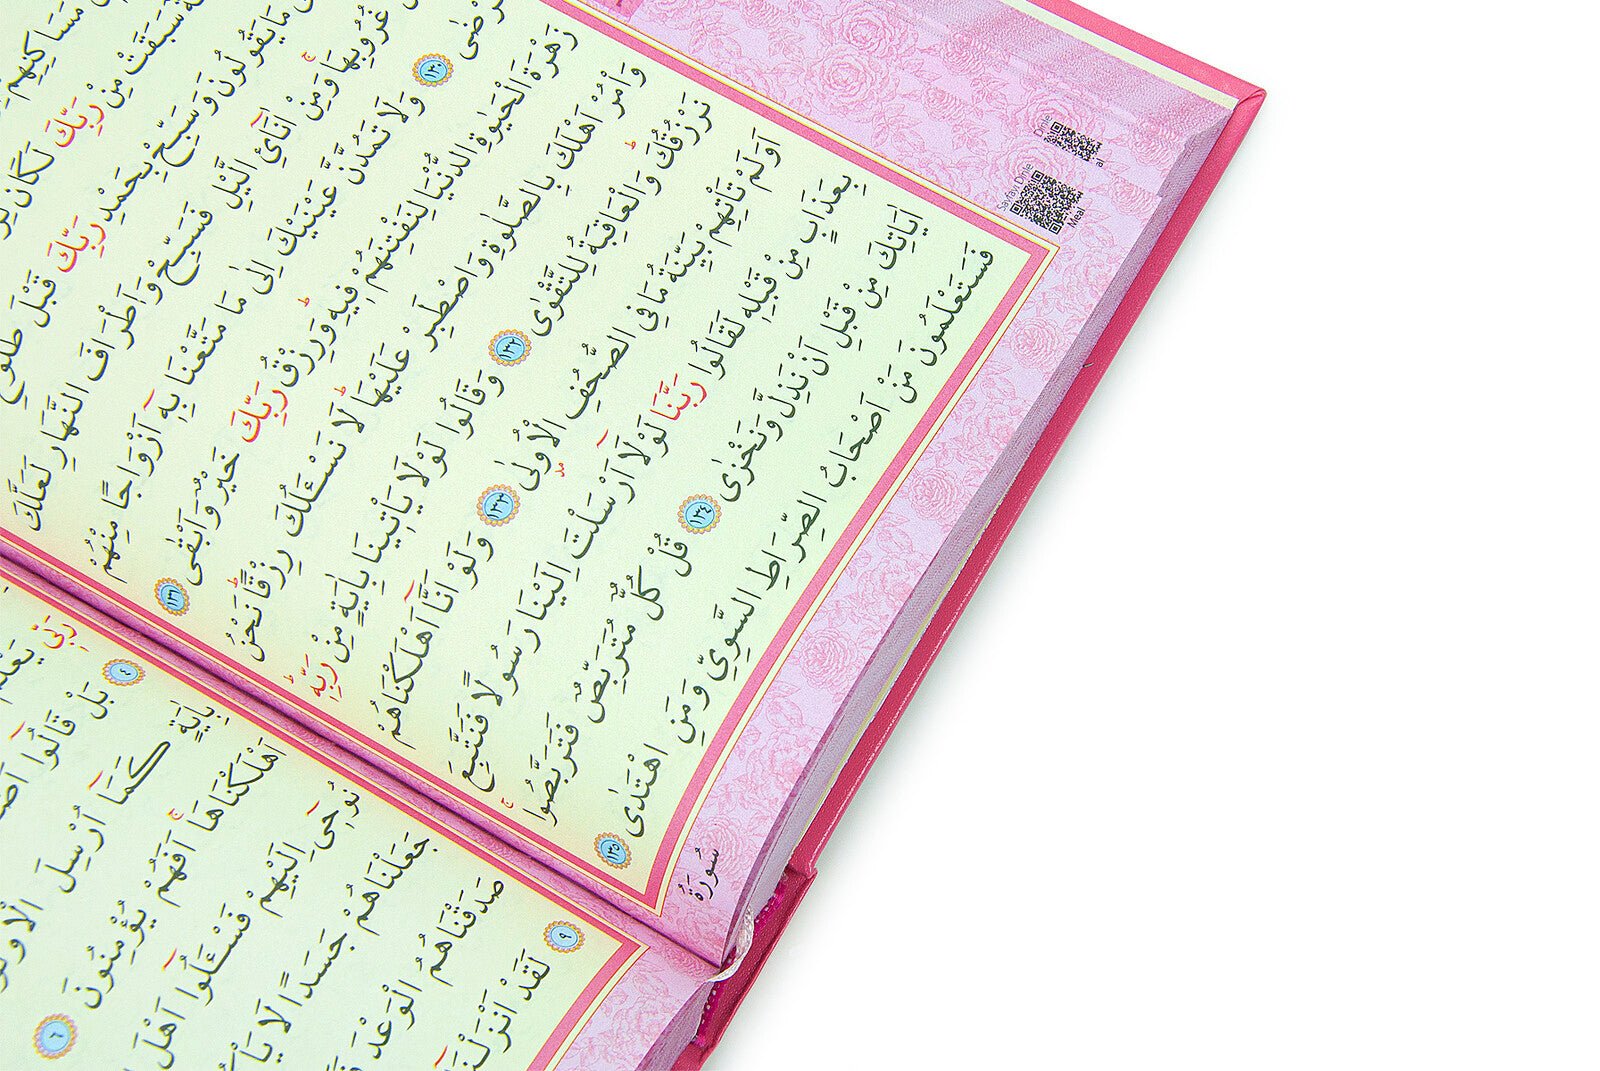 مَسَاكِنِهِمْ
سَبَقَتْ مِنْ رَبِّكَ لَكَانَ
مَا يَقُولُونَ وَسَبِّحْ بِحَمْدِ رَبِّكَ قَبْلَ طُلُوعِ
غُرُوبِهَا وَمِنْ اٰنَٓائِ الَّيْلِ فَسَبِّحْ وَاَطْرَافَ النَّهَارِ لَعَلَّكَ
تَرْضٰى ١٣٠ وَلَا تَمُدَّنَّ عَيْنَيْكَ اِلٰى مَا مَتَّعْنَا بِهٖٓ اَزْوَاجًا مِنْهُمْ
زَهْرَةَ الْحَيٰوةِ الدُّنْيَا لِنَفْتِنَهُمْ فِيهِ وَرِزْقُ رَبِّكَ خَيْرٌ وَاَبْقٰى ١٣١
وَأْمُرْ اَهْلَكَ بِالصَّلٰوةِ وَاصْطَبِرْ عَلَيْهَا لَا نَسْـَٔلُكَ رِزْقًا نَحْنُ
نَرْزُقُكَ وَالْعَاقِبَةُ لِلتَّقْوٰى ١٣٢ وَقَالُوا لَوْلَا يَأْتِينَا بِاٰيَةٍ مِنْ رَبِّهٖ
اَوَلَمْ تَأْتِهِمْ بَيِّنَةُ مَا فِي الصُّحُفِ الْاُولٰى ١٣٣ وَلَوْ اَنَّٓا اَهْلَكْنَاهُمْ
بِعَذَابٍ مِنْ قَبْلِهٖ لَقَالُوا رَبَّنَا لَوْلَٓا اَرْسَلْتَ اِلَيْنَا رَسُولًا فَنَتَّبِعَ
اٰيَاتِكَ مِنْ قَبْلِ اَنْ نَذِلَّ وَنَخْزٰى ١٣٤ قُلْ كُلٌّ مُتَرَبِّصٌ فَتَرَبَّصُوا
فَسَتَعْلَمُونَ مَنْ اَصْحَابُ الصِّرَاطِ السَّوِيِّ وَمَنِ اهْتَدٰى ١٣٥
Dinle
Sayfayı Dinle
Meal
سُورَةُ
رَبِّي يَعْلَمُ
٤ بَلْ قَالُٓوا
بِاٰيَةٍ كَمَٓا اُرْسِلَ الْاَوَّلُونَ
اَهْلَكْنَاهَا اَفَهُمْ يُؤْمِنُونَ ٦
نُوحِٓي اِلَيْهِمْ فَسْـَٔلُٓوا اَهْلَ
جَعَلْنَاهُمْ جَسَدًا لَا
صَدَقْنَاهُمُ الْوَعْدَ
٩ لَقَدْ اَنْزَلْنَٓا